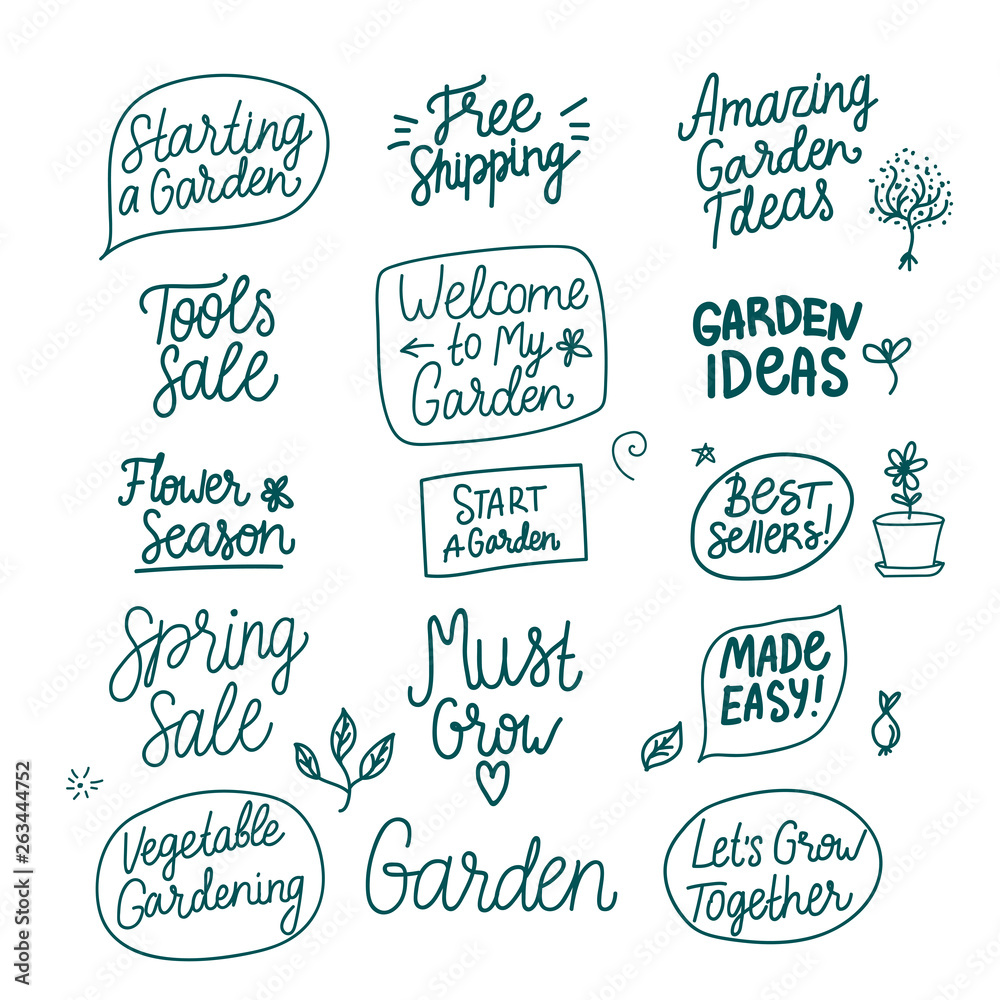 Starting
a Garden
Free
Shipping
Amazing
Garden
Ideas
Tools
Sale
Welcome
to My
Garden
GARDEN
IDEAS
Flower
Season
START
A Garden
BEST
Sellers!
Spring
Sale
Must
Grow
MADE
EASY!
Vegetable
Gardening
Garden
Let's Grow
Together
Adobe Stock | #263444752